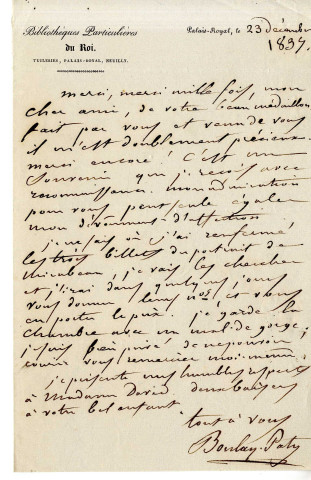 Bibliothèques Particulières
du Roi.
TUILERIES, PALAIS-ROYAL, NEUILLY.
Palais-Royal, le 23 décembre
1837.
merci, merci mille fois, mon
cher ami, de votre beau médaillon
fait par vous et venu de vous
il m'est doublement précieux.
merci encore ! C'est un
souvenir que je reçois avec
reconnaissance. mon admiration
pour vous peut seule égaler
mon dévouement d'affection
je ne sais où j'ai renfermé
les trois billets du portrait de
mirabeau, je vais les chercher
et j'irai dans quelques jours
vous donner leurs nos et vous
en porter le prix. je garde la
chambre avec un mal de gorge ;
je suis bien privé de ne pouvoir
courir vous remercier moi-même.
je présente mes humbles respects
à Madame David deux baisers
à votre bel enfant.
tout à vous
Boulay-Paty